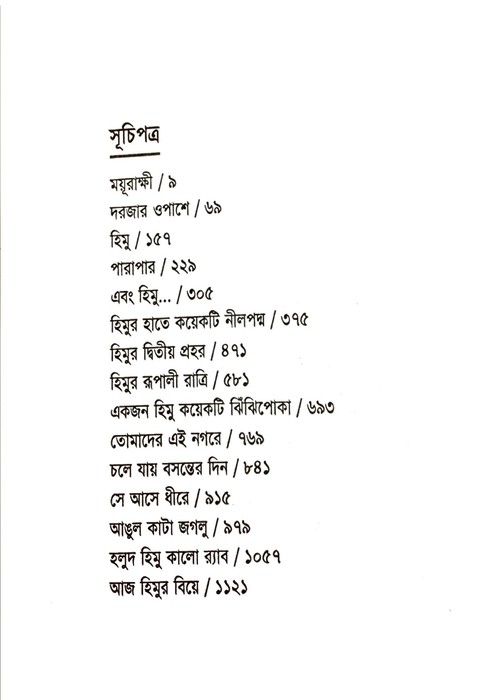 সূচিপত্র
ময়ূরাক্ষী / ৯
দরজার ওপাশে / ৬৯
হিমু / ১৫৭
পারাপার / ২২৯
এবং হিমু... / ৩০৫
হিমুর হাতে কয়েকটি নীলপদ্ম / ৩৭৫
হিমুর দ্বিতীয় প্রহর / ৪৭১
হিমুর রূপালী রাত্রি / ৫৮১
একজন হিমু কয়েকটি ঝিঁঝিপোকা / ৬৯৩
তোমাদের এই নগরে / ৭৬৯
চলে যায় বসন্তের দিন / ৮৪১
সে আসে ধীরে / ৯১৫
আঙুল কাটা জগলু / ৯৭৯
হলুদ হিমু কালো র‍্যাব / ১০৫৭
আজ হিমুর বিয়ে / ১১২১